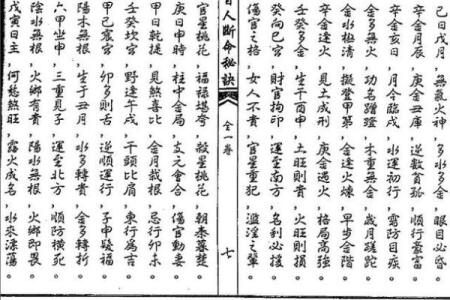 己日戊月，無氣火神，多水多金，眼目必昏。
庚金丑庫，逆數多孤，順行豐富。
辛金亥日，月令臨戌，水運初行，需防目疾。
金多無火，功名蹭蹬，木重無金，歲月蹉跎。
金水極清，擬登甲第，金逢火煉，早步金階。
辛金逢火，見土成刑，庚金遇火，格局高強。
壬癸多金，生于酉申，土旺則貴，火旺則損。
癸向巳宮，財官拘印，運至南方，名利必獲。
傷官之格，女人不貴，官星重犯，濫淫之輩。
人斷命秘訣 全一卷 七
官星桃花，福祿堪夸，殺星桃花，朝秦暮楚。
庚日申時，柱中金局，支元會合，傷官動妻。
甲日乾提，見煞喜比，金月栽根，忌行卯未。
壬癸坎宮，野逢午戌，干頭比肩，東行為吉。
甲乙震宮，卯多則夭，逆順運行，子申疑福。
陽木無根，生于丑月，水多轉貴，金多轉折。
六甲坐申，三重見子，運至北方，順防橫死。
陰水無根，火鄉有貴，陽水無根，火鄉即畏。
戊寅日主，何愁煞旺，露火成名，水來漂蕩。